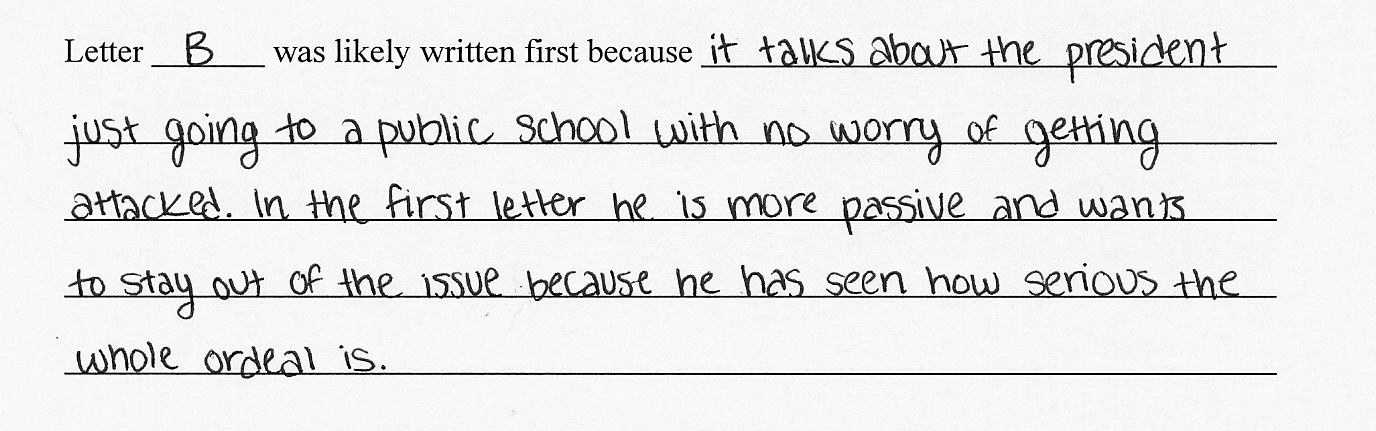 Letter B was likely written first because it talks about the president
just going to a public school with no worry of getting
attacked. In the first letter he is more passive and wants
to stay out of the issue because he has seen how serious the
whole ordeal is.